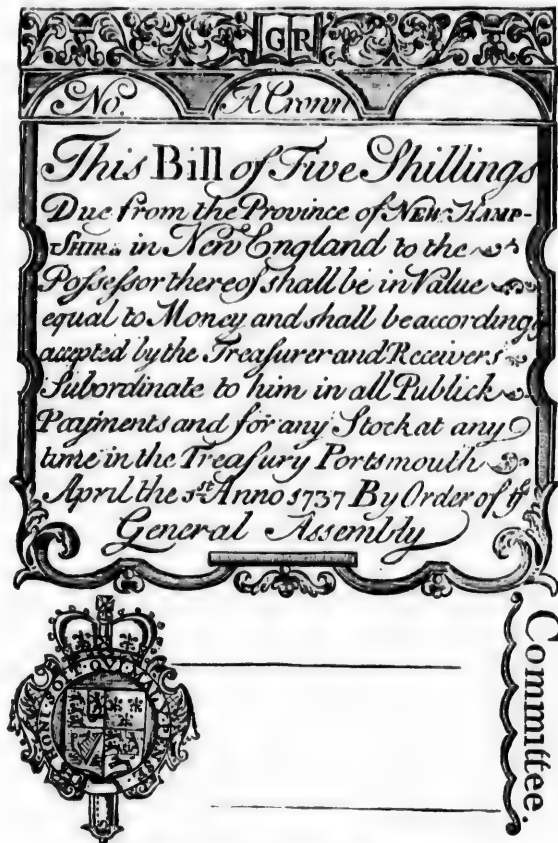 GR
No. A Crown
This Bill of Five Shillings
Due from the Province of NEW-HAMP-
SHIRE in New England to the
Poſseſsor thereof shall be in Value
equal to Money and shall be accordingly
accepted by the Treaſurer and Receivers
Subordinate to him in all Publick
Payments and for any Stock at any
time in the Treaſury Portsmouth
April the 1st Anno 1737 By Order of ye
General Aſsembly
HONI SOIT QUI MAL Y PENSE
Committee.